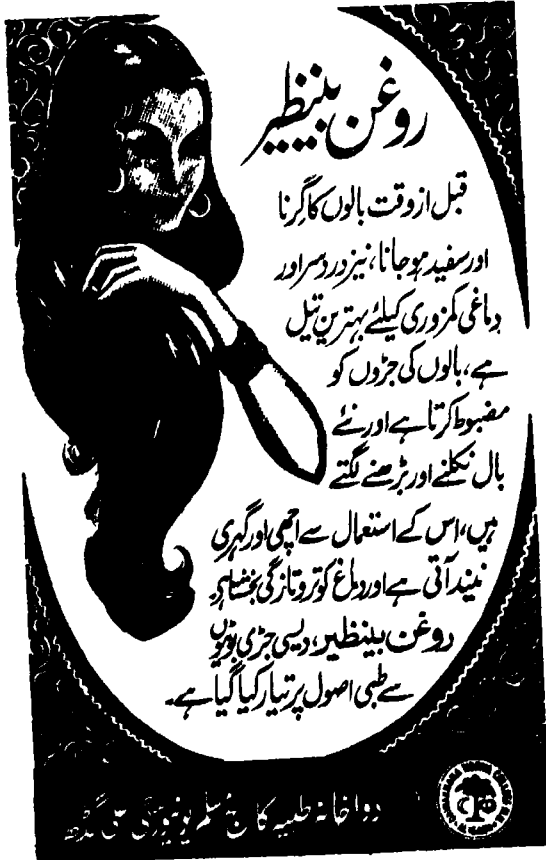 روغن بینظیر
قبل از وقت بالوں کا گرنا
اور سفید ہو جانا، نیز دردسر اور
دماغی کمزوری کیلئے بہترین تیل
ہے، بالوں کی جڑوں کو
مضبوط کرتا ہے اور نئے
بال نکلنے اور بڑھنے لگتے
ہیں، اس کے استعمال سے اچھی اور گہری
نیند آتی ہے اور دماغ کو تروتازگی بخشتا ہے
روغن بینظیر، دیسی جڑی بوٹیوں
سے طبی اصول پر تیار کیا گیا ہے۔
دواخانہ طبیہ کالج مسلم یونیورسٹی علی گڈھ